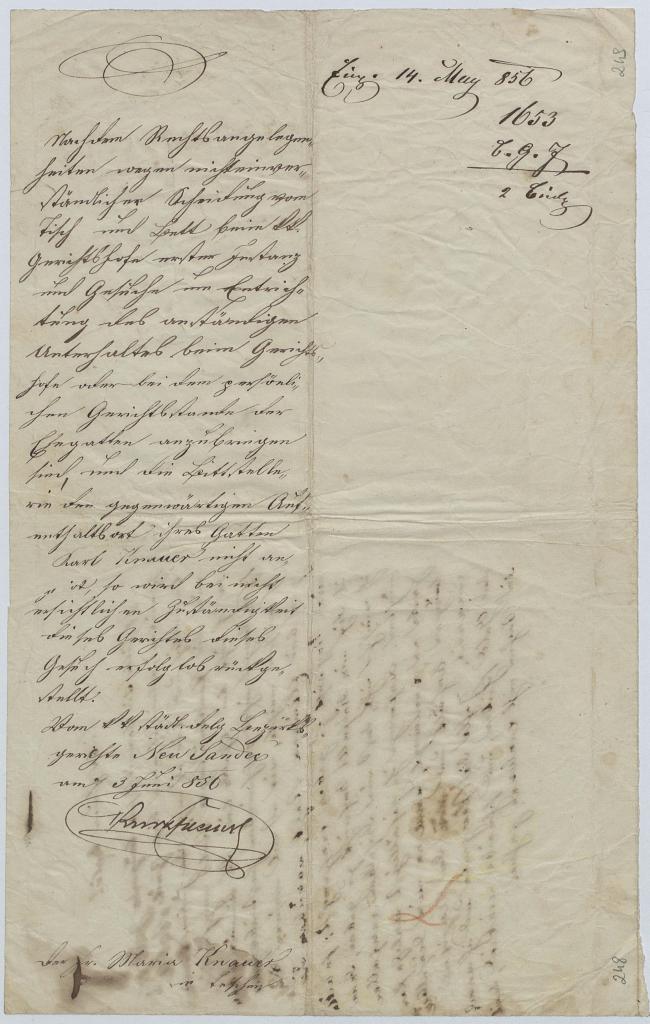 14. May 856
1653
2
Nachdem Rechtsangelegen-
heiten wegen nichteinver-
ständlicher Scheidung von
Tisch und Bett beim kk.
Gerichtshofe erster Instanz
und Gesuche um Entrich-
tung des anständigen
Unterhaltes beim Gerichts-
hofe oder bei dem persönli-
chen Gerichtsstande der
Ehegatten anzubringen
sind, und die Bittstelle-
rin den gegenwärtigen Auf-
enthaltsort ihres Gatten
Karl Knauer nicht an-
ist, so wird bei nicht
ersichtlichen Zuständigkeit
dieses Gerichtes dieses
Gesuch erfolglos rückge-
stellt.
Vom kk städt. delg Bezirks-
gerichte Neu Sandez
am 3 Juni 856
Der Fr. Maria Knauer
in Teschen
248
248